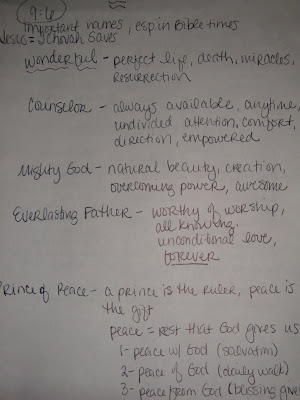 9:6
Important names, esp in Bible times
Jesus = Jehovah saves
Wonderful - perfect life, death, miracles,
resurrection
Counselor - always available, anytime,
undivided attention, comfort,
direction, empowered
Mighty God - natural beauty, creation,
overcoming power, awesome
Everlasting Father - worthy of worship,
all knowing,
unconditional love,
forever
Prince of Peace - a prince is the ruler, peace is
the gift
peace = rest that God gives us
1- peace w/ God (salvation)
2- peace of God (daily walk)
3- peace from God (blessing